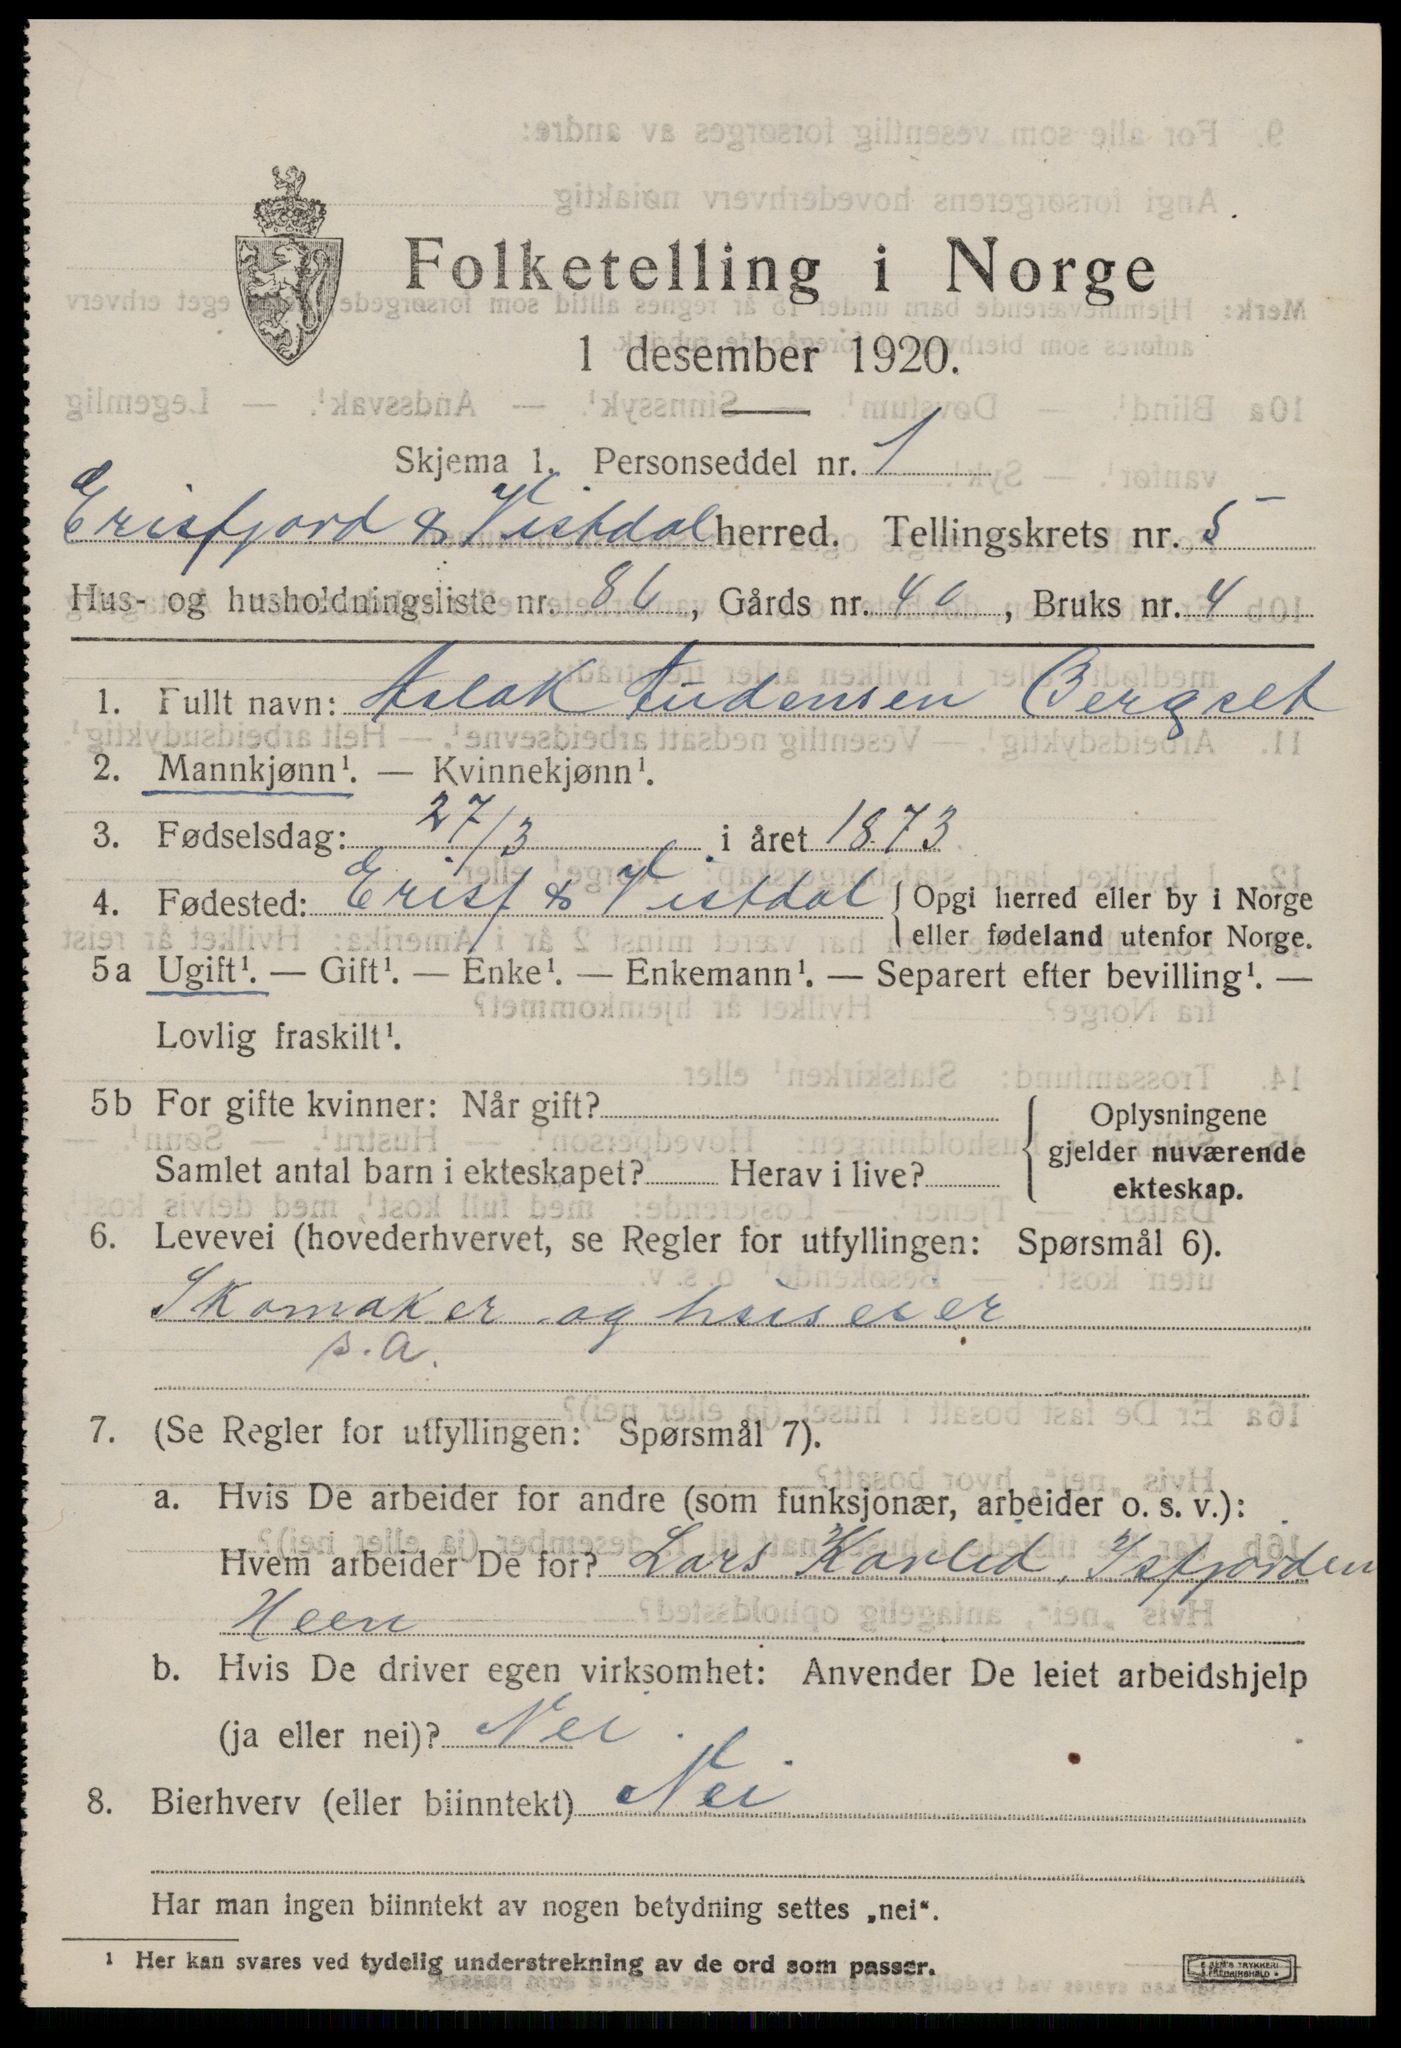 Folketelling i Norge
1 desember 1920.
Skjema 1. Personseddel nr. 1
Erisfjord & Vistdal herred. Tellingskrets nr. 5
Hus- og husholdningsliste nr. 86, Gårds nr. 40, Bruks nr. 4
1. Fullt navn: Aslak Audensen Bergset
2. Mannkjønn¹. — Kvinnekjønn¹.
3. Fødselsdag: 27/3 i året 1873
4. Fødested: Erisf & Vistdal { Opgi herred eller by i Norge
eller fødeland utenfor Norge.
5a Ugift¹. — Gift¹. — Enke¹. — Enkemann¹. — Separert efter bevilling¹. —
Lovlig fraskilt¹.
5b For gifte kvinner: Når gift?
Samlet antal barn i ekteskapet? Herav i live?
{ Oplysningene
gjelder nuværende
ekteskap.
6. Levevei (hovederhvervet, se Regler for utfyllingen: Spørsmål 6).
Skomaker og huseier
s.a.
7. (Se Regler for utfyllingen: Spørsmål 7).
a. Hvis De arbeider for andre (som funksjonær, arbeider o. s. v.):
Hvem arbeider De for? Lars Kavlid, Isfjorden
Heen
b. Hvis De driver egen virksomhet: Anvender De leiet arbeidshjelp
(ja eller nei)? Nei.
8. Bierhverv (eller biinntekt) Nei
Har man ingen biinntekt av nogen betydning settes „nei".
¹ Her kan svares ved tydelig understrekning av de ord som passer.